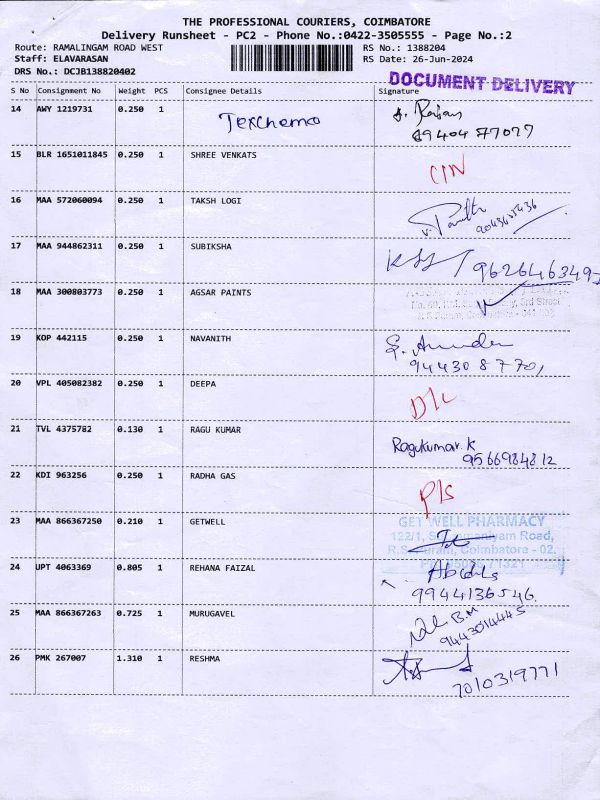 THE PROFESSIONAL COURIERS, COIMBATORE
Delivery Runsheet - PC2 - Phone No.:0422-3505555 - Page No.:2
Route: RAMALINGAM ROAD WEST RS No.: 1388204
Staff: ELAVARASAN RS Date: 26-Jun-2024
DRS No.: DCJB138820402
DOCUMENT DELIVERY
S No Consignment No Weight PCS Consignee Details Signature
14 AWY 1219731 0.250 1 Texchemo
15 BLR 1651011845 0.250 1 SHREE VENKATS
16 MAA 572060094 0.250 1 TAKSH LOGI
17 MAA 944862311 0.250 1 SUBIKSHA
9626463495
18 MAA 300803773 0.250 1 AGSAR PAINTS
3rd Street
19 KOP 442115 0.250 1 NAVANITH
9443087701
20 VPL 405082382 0.250 1 DEEPA D/L
21 TVL 4375782 0.130 1 RAGU KUMAR Ragukumar.K
9566984812
22 KDI 963256 0.250 1 RADHA GAS P/s
23 MAA 866367250 0.210 1 GETWELL GET WELL PHARMACY
122/1, Road,
Coimbatore - 02.
24 UPT 4063369 0.805 1 REHANA FAIZAL
9944136546
25 MAA 866367263 0.725 1 MURUGAVEL B.M
9443014445
26 PMK 267007 1.310 1 RESHMA
7010319771